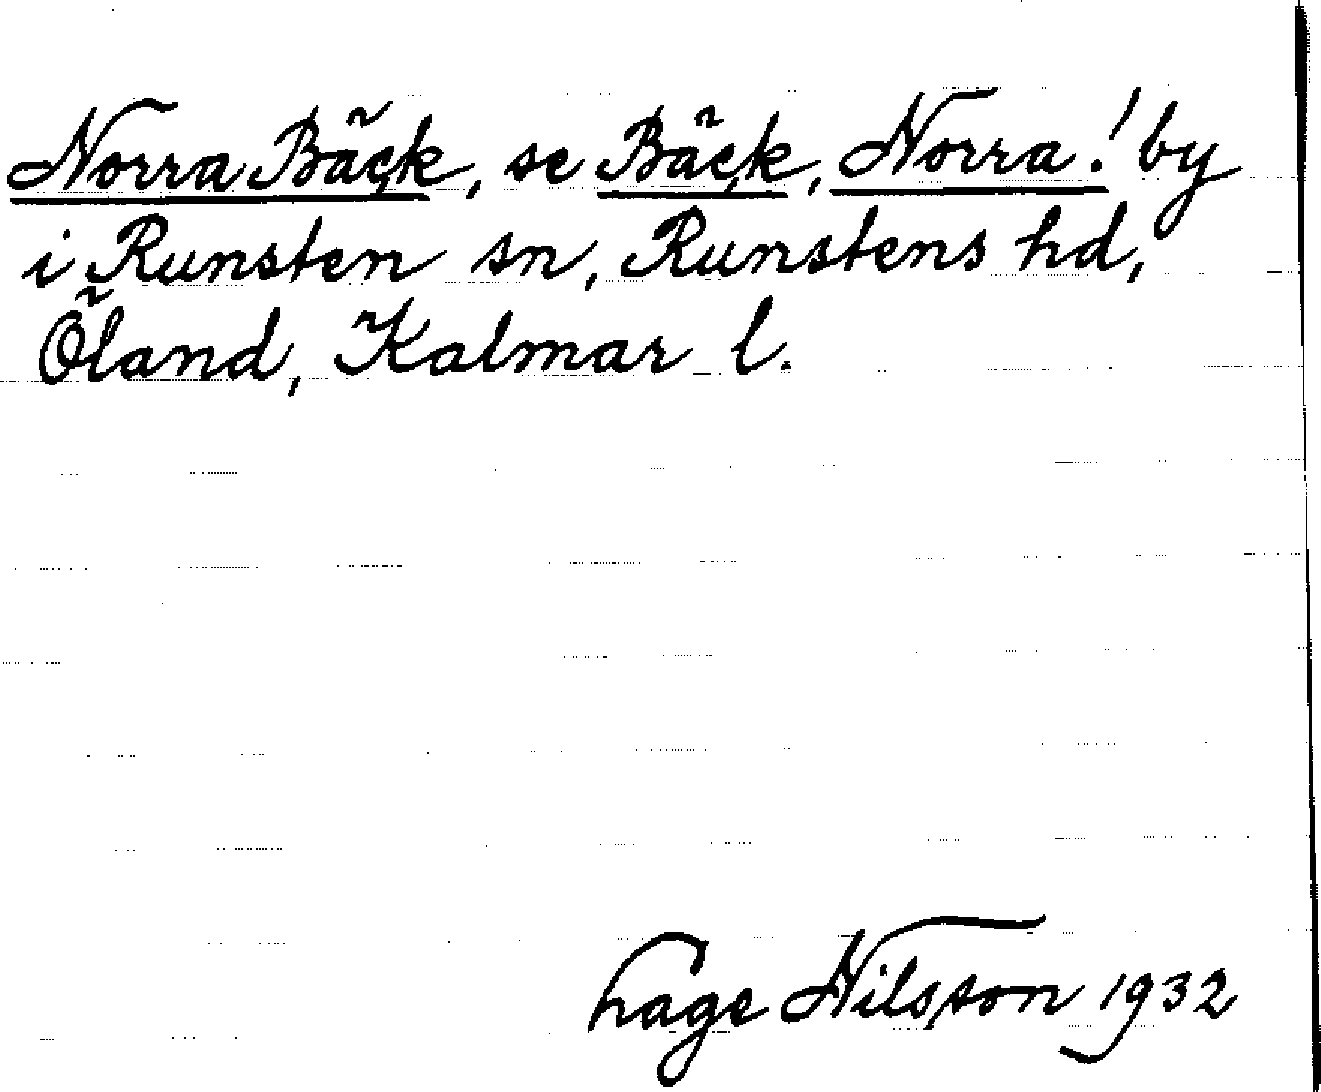 Norra Bäck, se Bäck, Norra! by
i Runsten sn, Runstens hd,
Öland, Kalmar l.
Hage Nilsson 1932